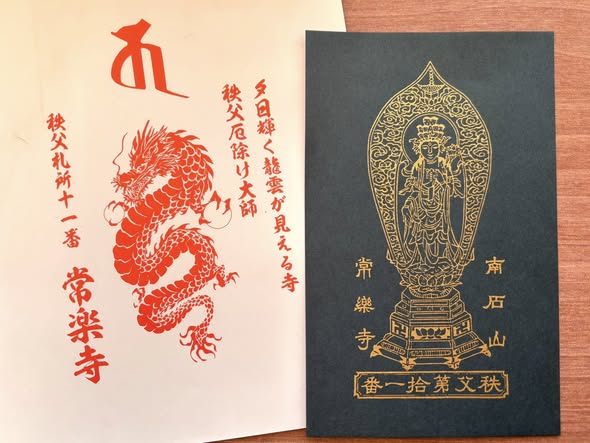 夕日輝く龍雲が見える寺
秩父厄除け大師
秩父札所十一番
常楽寺
南石山
常樂寺
秩父第拾一番